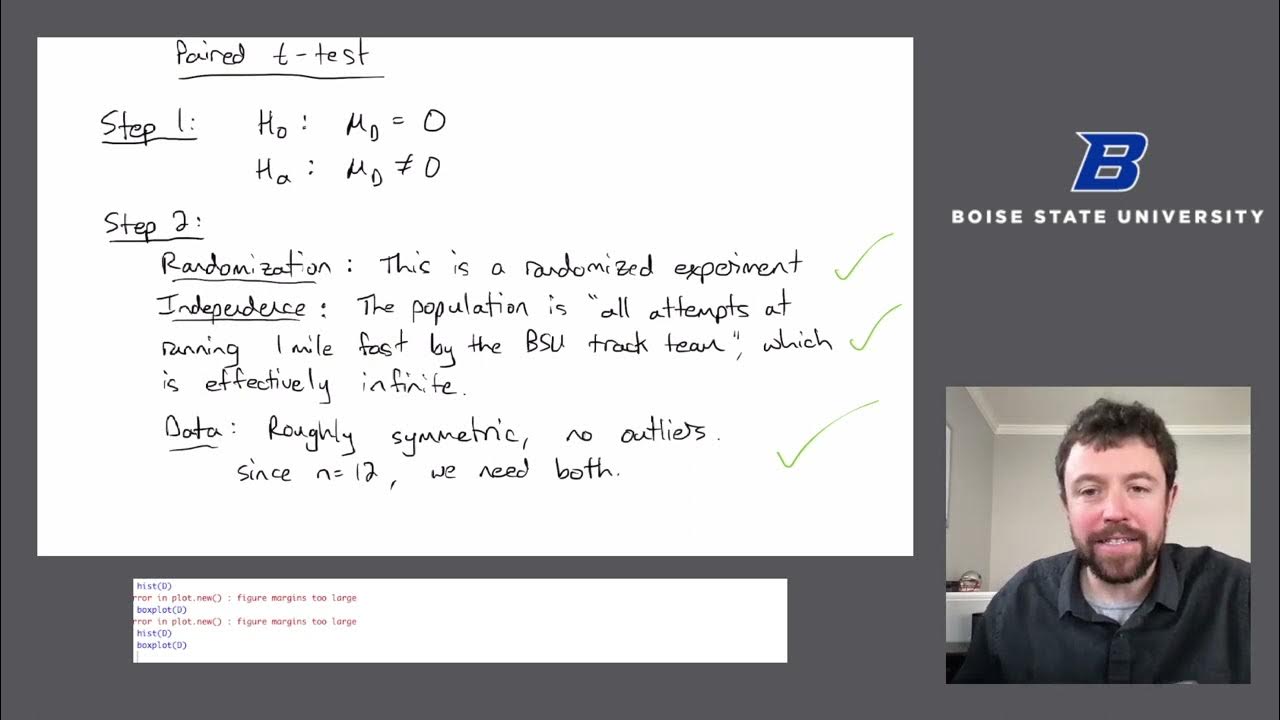 Paired t-test
Step 1: H₀ : μ_D = 0
Hₐ : μ_D ≠ 0
Step 2:
Randomization : This is a randomized experiment
Independence : The population is "all attempts at
running 1 mile fast by the BSU track team", which
is effectively infinite.
Data : Roughly symmetric, no outliers.
since n=12, we need both.
hist(D)
rror in plot.new() : figure margins too large
boxplot(D)
rror in plot.new() : figure margins too large
hist(D)
boxplot(D)
B
BOISE STATE UNIVERSITY